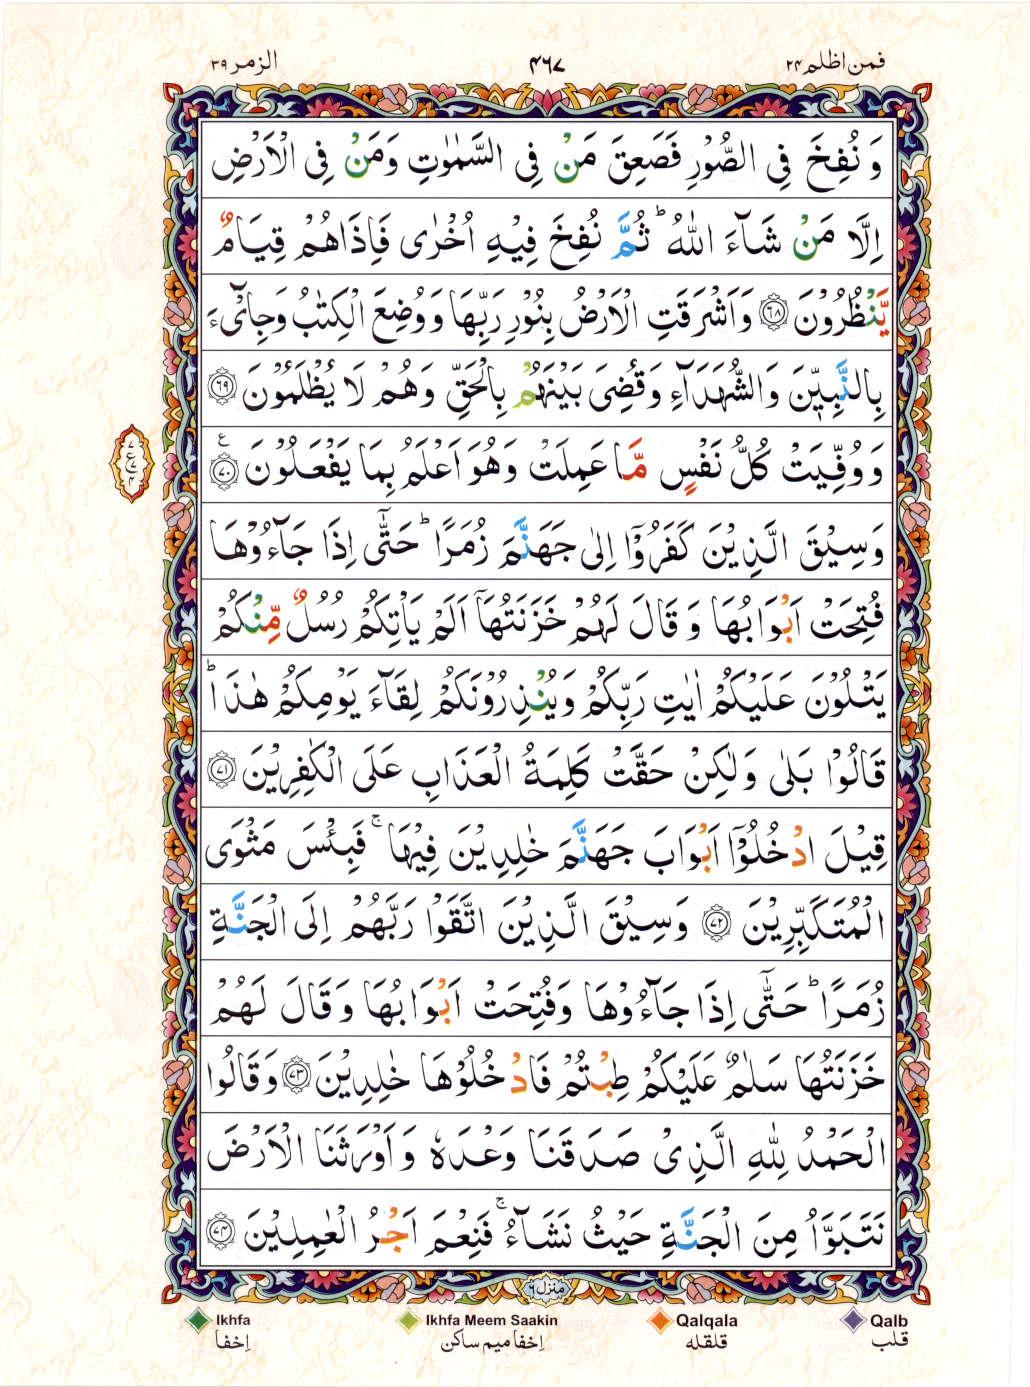 فمن اظلم ۲۴
۴۶۷
الزمر ۳۹
وَ نُفِخَ فِی الصُّوْرِ فَصَعِقَ مَنْ فِی السَّمٰوٰتِ وَمَنْ فِی الْاَرْضِ
اِلَّا مَنْ شَآءَ اللّٰهُ ؕ ثُمَّ نُفِخَ فِیْهِ اُخْرٰی فَاِذَاهُمْ قِیَامٌ
یَّنْظُرُوْنَ ﴿۶۸﴾ وَاَشْرَقَتِ الْاَرْضُ بِنُوْرِ رَبِّهَا وَوُضِعَ الْكِتٰبُ وَجِایْٓءَ
بِالنَّبِیّٖنَ وَالشُّهَدَآءِ وَقُضِیَ بَیْنَهُمْ بِالْحَقِّ وَهُمْ لَا یُظْلَمُوْنَ ﴿۶۹﴾
وَوُفِّیَتْ كُلُّ نَفْسٍ مَّا عَمِلَتْ وَهُوَ اَعْلَمُ بِمَا یَفْعَلُوْنَ ﴿۷۰﴾ ع
۷ ع ۷ ۴
وَسِیْقَ الَّذِیْنَ كَفَرُوْۤا اِلٰی جَهَنَّمَ زُمَرًا ؕ حَتّٰۤی اِذَا جَآءُوْهَا
فُتِحَتْ اَبْوَابُهَا وَ قَالَ لَهُمْ خَزَنَتُهَاۤ اَلَمْ یَاْتِكُمْ رُسُلٌ مِّنْكُمْ
یَتْلُوْنَ عَلَیْكُمْ اٰیٰتِ رَبِّكُمْ وَیُنْذِرُوْنَكُمْ لِقَآءَ یَوْمِكُمْ هٰذَا ؕ
قَالُوْا بَلٰی وَلٰكِنْ حَقَّتْ كَلِمَةُ الْعَذَابِ عَلَی الْكٰفِرِیْنَ ﴿۷۱﴾
قِیْلَ ادْخُلُوْۤا اَبْوَابَ جَهَنَّمَ خٰلِدِیْنَ فِیْهَا ۚ فَبِئْسَ مَثْوَی
الْمُتَكَبِّرِیْنَ ﴿۷۲﴾ وَسِیْقَ الَّذِیْنَ اتَّقَوْا رَبَّهُمْ اِلَی الْجَنَّةِ
زُمَرًا ؕ حَتّٰۤی اِذَا جَآءُوْهَا وَفُتِحَتْ اَبْوَابُهَا وَقَالَ لَهُمْ
خَزَنَتُهَا سَلٰمٌ عَلَیْكُمْ طِبْتُمْ فَادْخُلُوْهَا خٰلِدِیْنَ ﴿۷۳﴾ وَقَالُوا
الْحَمْدُ لِلّٰهِ الَّذِیْ صَدَقَنَا وَعْدَهٗ وَاَوْرَثَنَا الْاَرْضَ
نَتَبَوَّاُ مِنَ الْجَنَّةِ حَیْثُ نَشَآءُ ۚ فَنِعْمَ اَجْرُ الْعٰمِلِیْنَ ﴿۷۴﴾
منزل ۶
Ikhfa Ikhfa Meem Saakin Qalqala Qalb
اِخفا اِخفا میم ساکن قلقله قلب